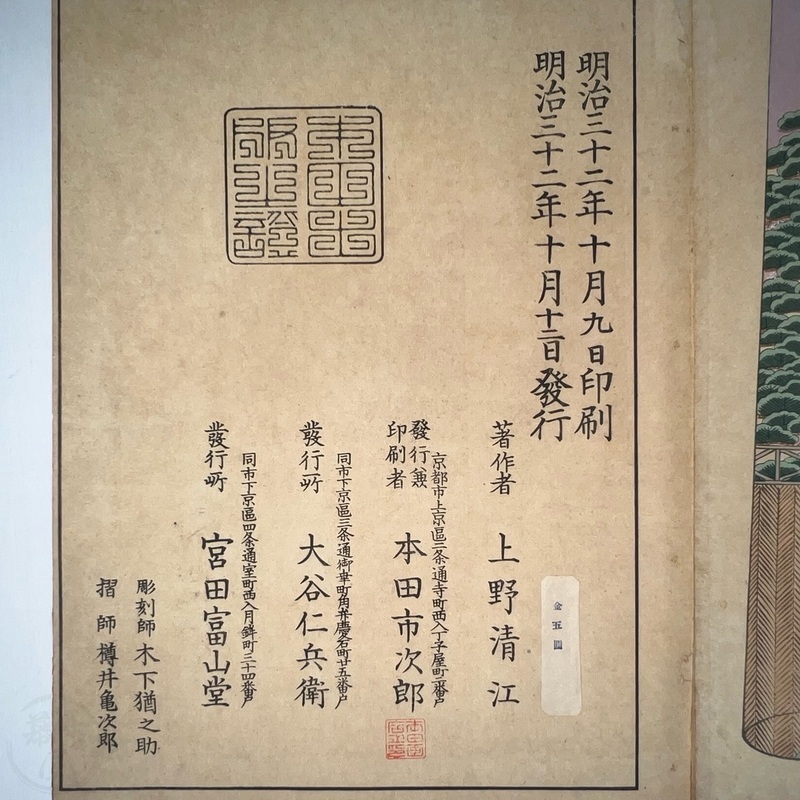 明治三十二年十月九日印刷
明治三十二年十月十三日發行
著作者 上野清江
金五圓
京都市上京區二条通寺町西入丁子屋町二番戸
發行兼印刷者 本田市次郎
同市下京區三条通御幸町角弁慶石町廿五番戸
發行所 大谷仁兵衛
同市下京區四条通室町西入月鉾町三十四番戸
發行所 宮田富山堂
彫刻師 木下猶之助
摺師 樽井亀次郎